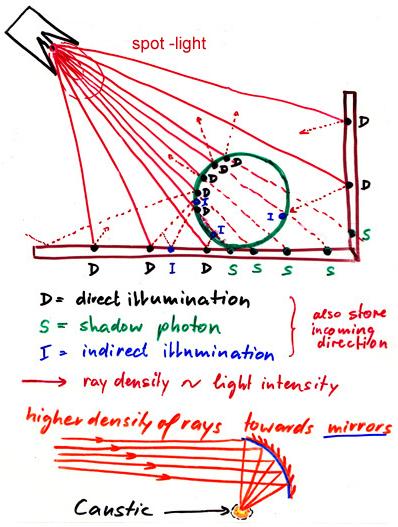 spot-light
D
D
D
D
D
D
D
I
I
I
D
S
D D I D S S S S
D = direct illumination
S = shadow photon
I = indirect illumination
also store
incoming
direction
→ ray density ~ light intensity
higher density of rays towards mirrors
Caustic →